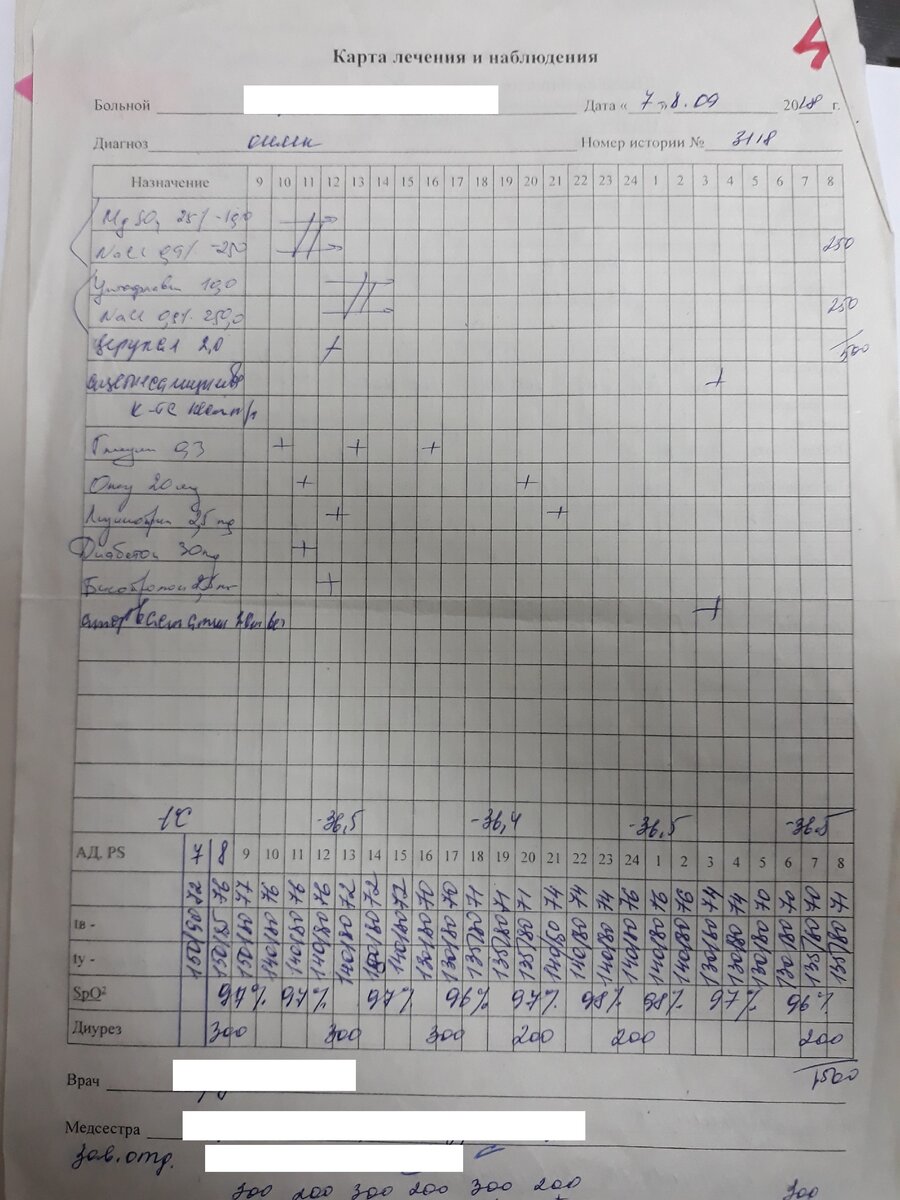 4
Карта лечения и наблюдения
Больной
Дата « 7 » 8.09 2018 г.
Диагноз онмк Номер истории № 3118
Назначение 9 10 11 12 13 14 15 16 17 18 19 20 21 22 23 24 1 2 3 4 5 6 7 8
MgSO4 25% - 10,0
NaCl 0,9% - 250 250
Цитофлавин 10,0
NaCl 0,9% 250,0 250
церукал 2,0 + 500
+
к-та
Глицин 0,3 + + +
Омез 20 мг + +
Лизиноприл 2,5 mg + +
Диабетон 30 mg +
Бисопролол 2,5 мг +
аторвастатин +
t°C -36,5 -36,4 -36,5 -36.5
АД, PS 7 8 9 10 11 12 13 14 15 16 17 18 19 20 21 22 23 24 1 2 3 4 5 6 7 8
150/90 72 150/85 76 150/80 77 140/80 76 140/80 76 140/80 76 140/80 72 140/80 72 140/80 72 130/80 70 130/80 70 135/80 71 135/80 71 135/80 71 140/80 74 140/80 74 140/80 74 140/80 76 140/80 76 140/80 76 130/80 74 130/80 74 130/80 70 130/80 70 135/80 70 135/80 71
tв -
ty -
SpO² 97% 97% 97% 96% 97% 98% 98% 97% 96%
Диурез 300 300 300 200 200 200
1500
Врач
Медсестра
зав. отд.
300 200 300 200 300 200 300